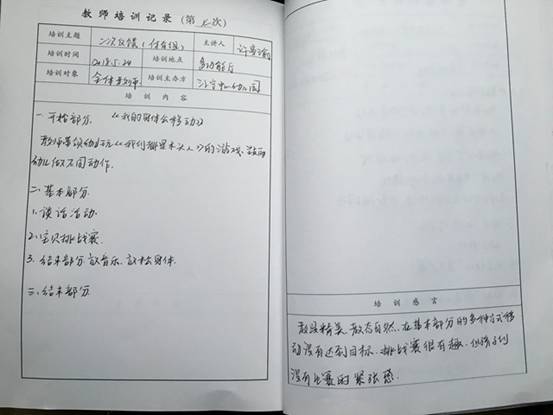 教师培训记录(第 次)
培训主题 二次反馈(体育组) 主讲人 许
培训时间 2018.5.24 培训地点 多功能厅
培训对象 全体教师 培训主办方 中心幼儿园
培训内容
一.开始部分. 《我的身体会移动》
教师带领幼儿玩《我们都是木头人》的游戏,鼓励
幼儿做不同动作.
二.基本部分.
1.谈话活动.
2.宝贝挑战赛.
3.结束部分放音乐.放松身体.
三.结束部分.
培训感言
教态自然.在基本部分的多种方式移
动没有达到目标.挑战赛很有趣.但孩子们
没有比赛的紧张感.